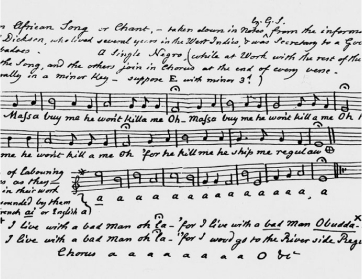 n African Song or Chant, – taken down in Notes, from the inform
by G.S.
Dickson, who lived several years in the West Indies, & was Secretary to a Go
A Single Negro (while at Work with the rest of the
the Song, and the others join in Chorus at the end of every verse.
ally in a minor Key – suppose E with minor 3d)
Massa buy me he wont killa me Oh – Massa buy me he wont killa me O
me he wont kill a me Oh 'for he kill me he ship me regulaw
of Labouring
as they
in their work
ounded by them
French ai or English a)
a a a a a a a a a
I live with a bad man oh la – 'for I live with a bad man Obudda-
I live with a bad man oh la – 'for I would go to the River side Reg
Chorus a a a a a a a a O &c